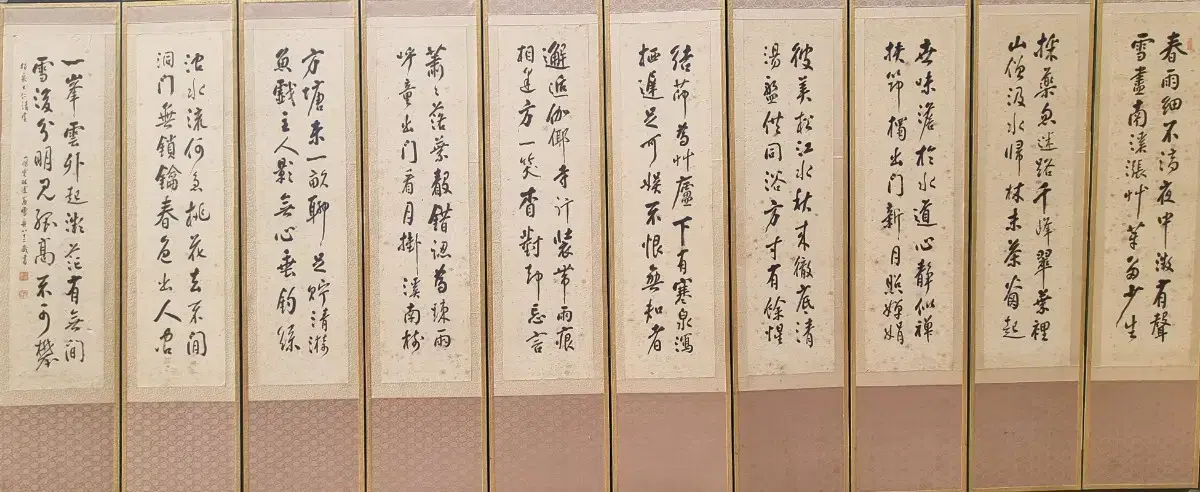 春雨細不滴夜中微有聲
雪盡南溪漲艸芽多少生
採藥忽迷路千峰翠葉裡
山僧汲水歸林末茶烟起
世味澹於水道心靜似禪
扶筇獨出門新月照嬋娟
彼美松江水秋來徹底清
湯盤供同浴方寸有餘惺
結茆為艸廬下有寒泉瀉
栖遲足可娛不恨無知者
邂逅伽倻寺行裝帶雨痕
相逢方一笑對却忘言
蕭々落葉聲錯認為疎雨
呼童出門看月掛溪南樹
方塘未一畝聊足貯清漪
魚戲主人影無心垂釣絲
水流何急桃花去不閒
洞門無鎖鑰春色出人間
一峯雲外起微茫有無間
雪後分明見孤高不可攀